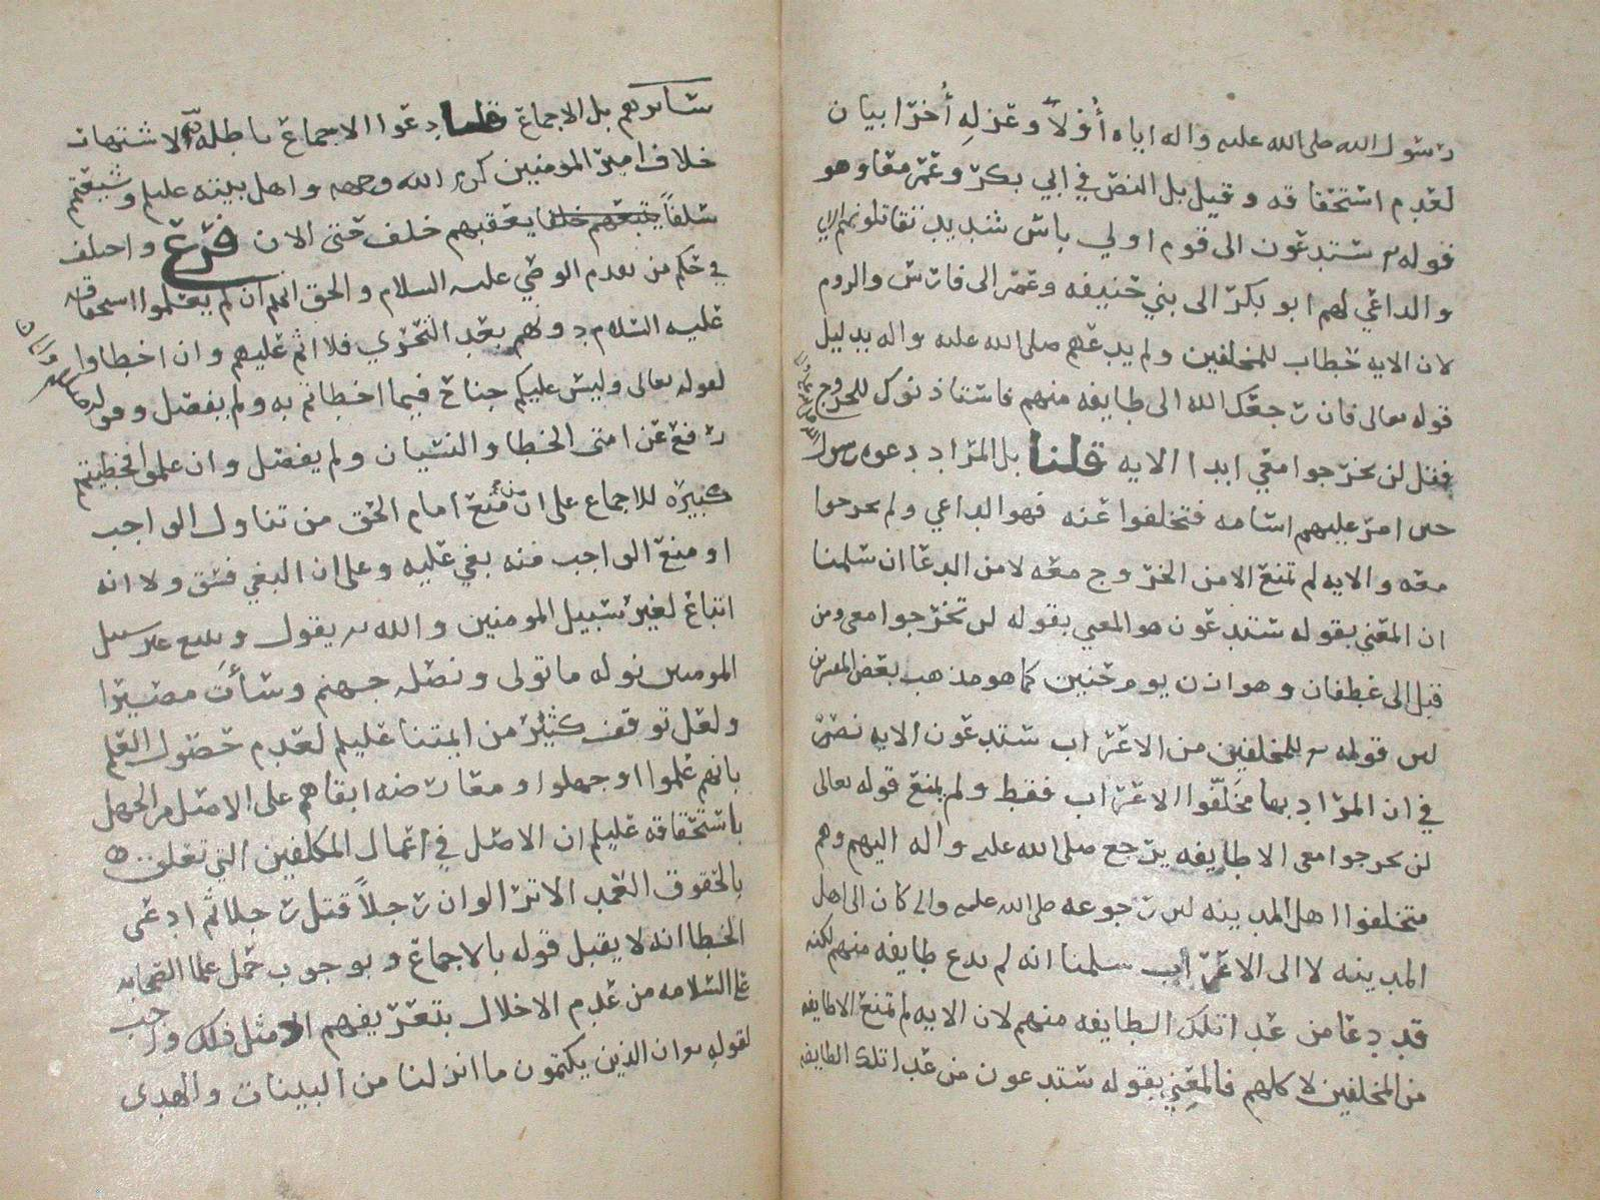 رسول الله صلى الله عليه واله اياه أولاً وعزله أخرا بيان
لعدم استحقاقه وقيل بل النص في ابي بكر وعمر معا وهو
قوله ستدعون الى قوم اولي باس شديد تقاتلونهم الايه
والداعي لهم ابو بكر الى بني حنيفه وعمر الى فارس والروم
لان الايه خطاب للمخلفين ولم يدعهم صلى الله عليه واله بدليل
قوله تعالى فان رجعك الله الى طايفه منهم فاستاذنوك للخروج
فقل لن تخرجوا معي ابدا الايه قلنا بل المراد دعوه رسول
حين امر عليهم اسامه فتخلفوا عنه فهو الداعي ولم يخرجوا
معه والايه لم تمنع الا من الخروج معه لا من الدعا ان سلمنا
ان المعني بقوله ستدعون هو المعني بقوله لن تخرجوا معي ومن
قبل الى غطفان وهوازن يوم حنين كما هو مذهب بعض المفسرين
لان قوله للمخلفين من الاعراب ستدعون الايه نص
في ان المراد بها مخلفوا الاعراب فقط ولم يمنع قوله تعالى
لن تخرجوا معي الا طايفه يرجع صلى الله عليه واله اليهم وهم
متخلفوا اهل المدينه لان رجوعه صلى الله عليه واله كان الى اهل
المدينه لا الى الاعراب سلمنا انه لم يدع طايفه منهم لكنه
قد دعا من عدا تلك الطايفه منهم لان الايه لم تمنع الا طايفه
من المخلفين لا كلهم فالمعني بقوله ستدعون من عدا تلك الطايفه
بل الاجماع قلنا دعوا الاجماع باطله لاشتهار
خلاف امير المومنين كرم الله وجهه واهل بيته عليهم وشيعتهم
سلفاً يتبعهم خلفا يعقبهم خلف حتى الان فرع واختلف
في حكم من تقدم الوصي عليه السلام والحق انهم ان لم يعلموا استحقاقه
عليه السلام دونهم بعد التحري فلا اثم عليهم وان اخطاوا
لقوله تعالى وليس عليكم جناح فيما اخطاتم به ولم يفصل وقوله
رفع عن امتي الخطا والنسيان ولم يفصل وان علموا فخطيتهم
كبيره للاجماع على ان منع امام الحق من تناول الواجب
او منع الواجب منه بغي عليه وعلى ان البغي فسق ولانه
اتباع لغير سبيل المومنين والله يقول ويتبع غير سبيل
المومنين نوله ما تولى ونصله جهنم وسأت مصيرا
ولعل توقف كثير من ايمتنا عليهم لعدم حصول العلم
بانهم علموا او جهلوا ومعارضه ابقاهم على الاصل من الجهل
باستحقاقه عليهم ان الاصل في اعمال المكلفين التي تعلق
بالحقوق العمد الا ترا لو ان رجلاً قتل رجلا ثم ادعى
الخطا انه لا يقبل قوله بالاجماع وبوجوب حمل علما الصحابه
على السلامه من عدم الاخلال بتعريفهم اذ مثل ذلك واجب
لقوله ان الذين يكتمون ما انزلنا من البينات والهدى